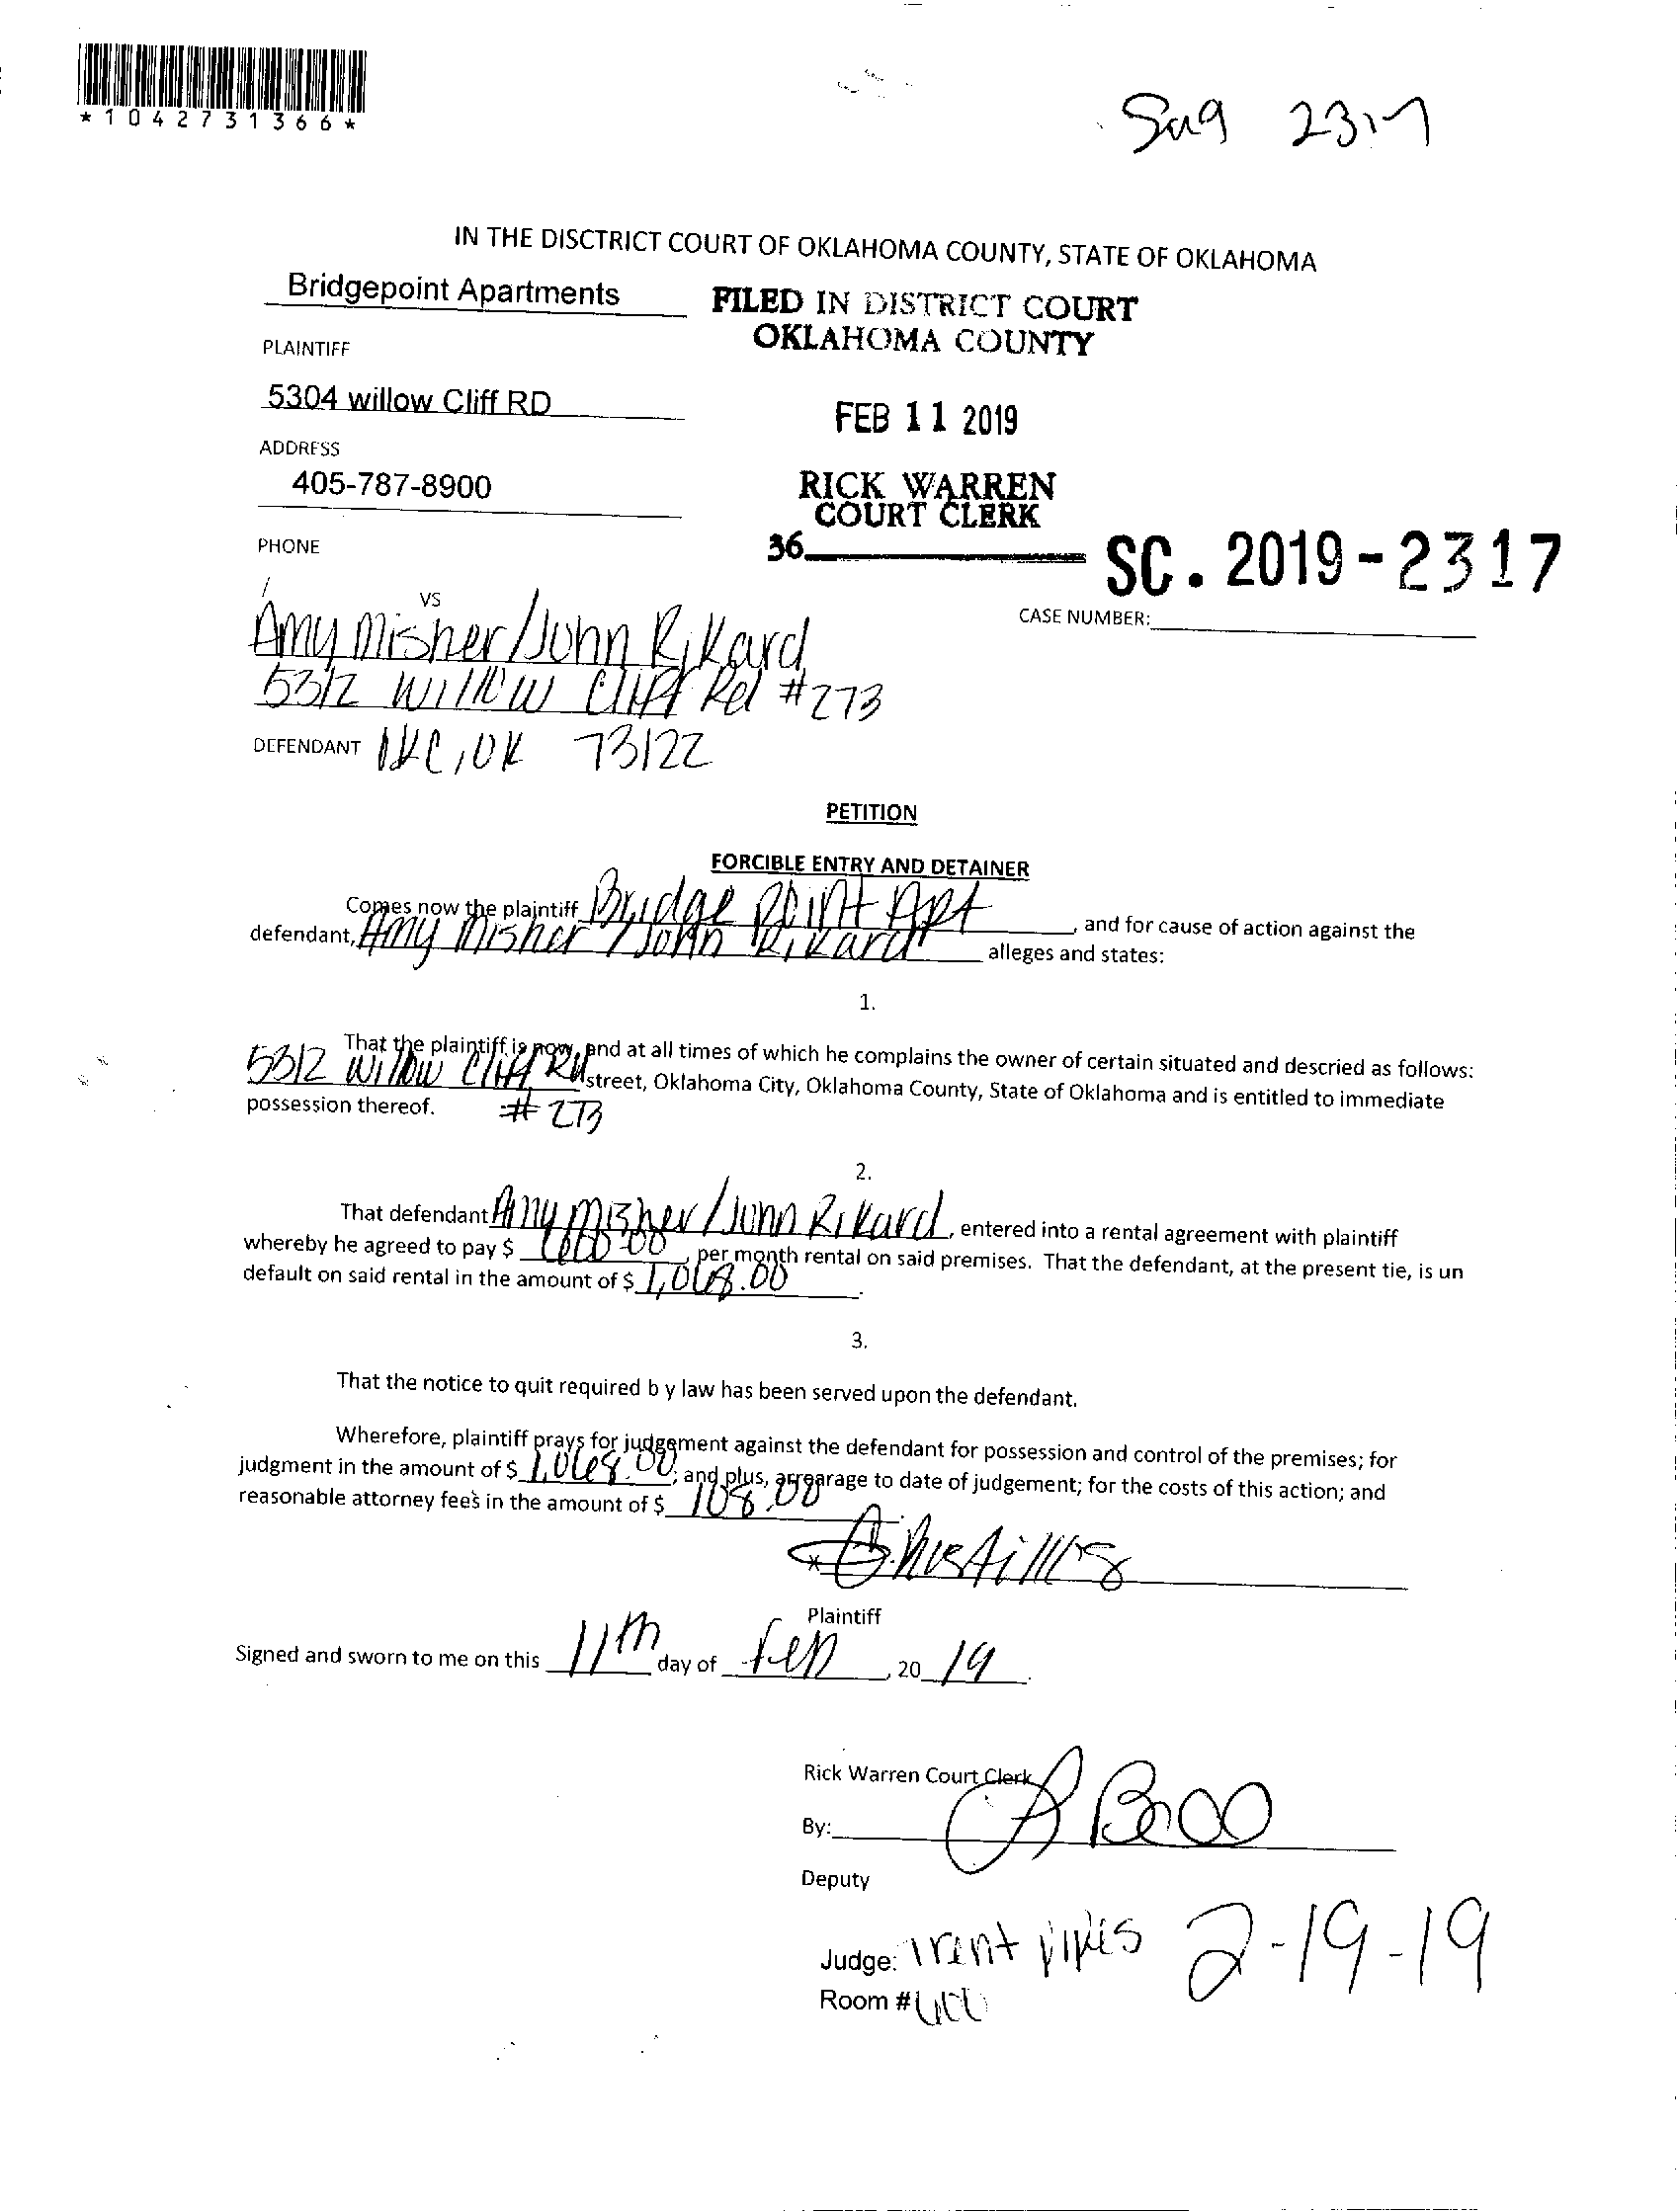 *1042731366*
2317
IN THE DISCTRICT COURT OF OKLAHOMA COUNTY, STATE OF OKLAHOMA
Bridgepoint Apartments
FILED IN DISTRICT COURT
OKLAHOMA COUNTY
PLAINTIFF
5304 willow Cliff RD
FEB 11 2019
ADDRESS
405-787-8900
RICK WARREN
COURT CLERK
PHONE
36
SC. 2019-2317
VS
CASE NUMBER:
Amy Misher/John Rikard
5312 Willow Cliff Rd #273
DEFENDANT OKC, OK 73122
PETITION
FORCIBLE ENTRY AND DETAINER
Comes now the plaintiff Bridge Point Apt, and for cause of action against the
defendant, Amy Misher / John Rikard alleges and states:
1.
That the plaintiff is now, and at all times of which he complains the owner of certain situated and descried as follows:
5312 Willow Cliff Rd street, Oklahoma City, Oklahoma County, State of Oklahoma and is entitled to immediate
possession thereof. # 273
2.
That defendant Amy Misher/John Rikard, entered into a rental agreement with plaintiff
whereby he agreed to pay $ , per month rental on said premises. That the defendant, at the present tie, is un
default on said rental in the amount of $ 1,068.00.
3.
That the notice to quit required b y law has been served upon the defendant.
Wherefore, plaintiff prays for judgement against the defendant for possession and control of the premises; for
judgment in the amount of $ 1,068.00; and plus, arrearage to date of judgement; for the costs of this action; and
reasonable attorney fee's in the amount of $ 108.00
Plaintiff
Signed and sworn to me on this 11th day of Feb, 20 19.
Rick Warren Court Clerk
By:
Deputy
Judge: Trent pipes 2-19-19
Room #